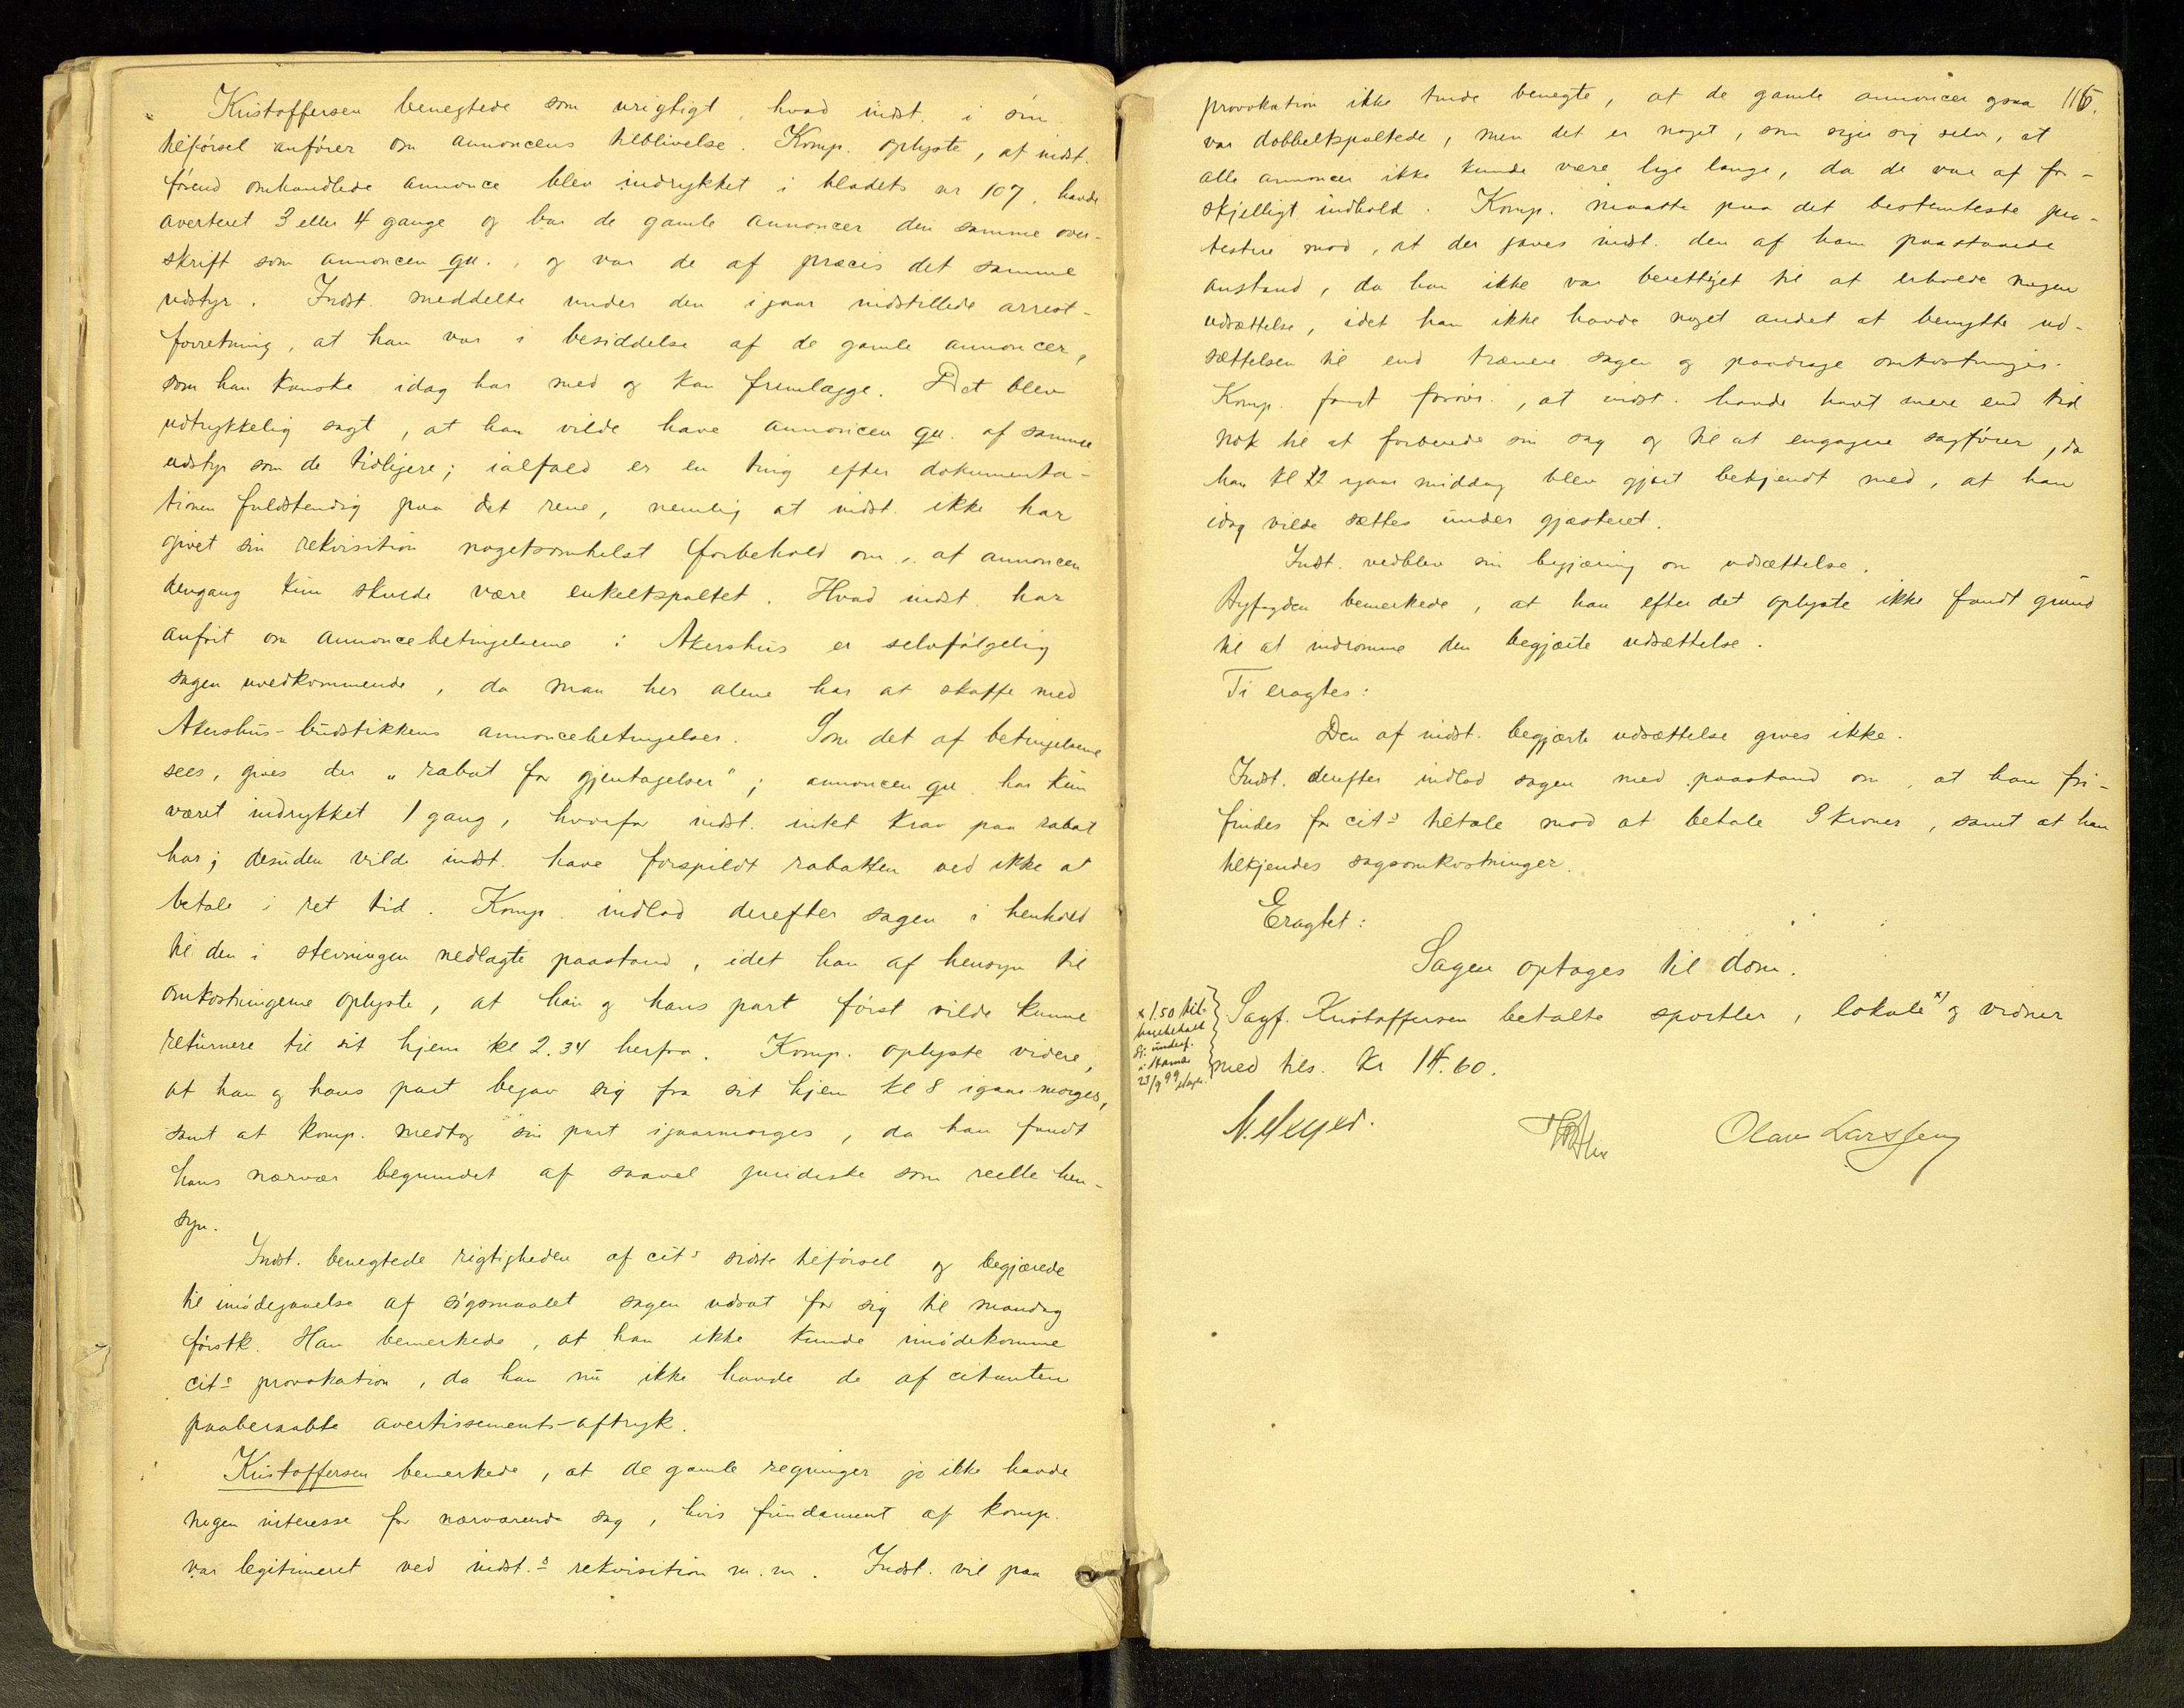 Kristoffersen benegtede som urigtigt, hvad indst. i sin
tilførsel anfører om annoncens tilblivelse. Komp. oplyste, at indst.
førend omhandlede annonce blev indrykket i bladets nr 107, havde
averteret 3 eller 4 gange og bar de gamle annoncer den samme over-
skrift som annoncen qu., og var de af præcis det samme
udstyr. Indst. meddelte under den igaar indstillede arrest-
forretning, at han var i besiddelse af de gamle annoncer,
som han kanske idag har med og kan fremlægge. Det blev
udtrykkelig sagt, at han vilde have annoncen qu. af samme
udstyr som de tidligere; ialfald er en ting efter dokumenta-
tionen fuldstendig paa det rene, nemlig at indst. ikke har
givet sin rekvisition nogetsomhelst forbehold om, at annoncen
dengang kun skulde være enkeltspaltet. Hvad indst. har
anført om annoncebetingelserne i Akershus er selvfølgelig
sagen uvedkommende, da man her alene har at skaffe med
Akershus-budstikkens annoncebetingelser. Som det af betingelserne
sees, gives der „rabat for gjentagelser"; annoncen qu. har kun
været indrykket 1 gang, hvorfor indst. intet krav paa rabat
har; desuden vilde indst. have forspildt rabatten ved ikke at
betale i ret tid. Komp. indlod derefter sagen i henhold
til den i stevningen nedlagte paastand, idet han af hensyn til
omkostningerne oplyste, at han og hans part først vilde kunne
returnere til sit hjem kl 2.34 herfra. Komp. oplyste videre,
at han og hans part begav sig fra sit hjem kl 8 igaar morges,
samt at komp. medtog sin part igaarmorges, da han fandt
hans nærvær begrundet af saavel juridiske som reelle hen-
syn.
Indst. benegtede rigtigheden af cit's sidste tilførsel og begjærede
til imødegaaelse af søgsmaalet sagen udsat for sig til mandag
førstk. Han bemerkede, at han ikke kunde imødekomme
cit's provokation, da han nu ikke havde de af citanten
paaberaabte avertissements-aftryk.
Kristoffersen bemerkede, at de gamle regninger jo ikke havde
nogen interesse for nærværende sag, hvis fundament af komp.
var legitimeret ved indst.'s rekvisition m.m. Indst. vil paa
provokation ikke turde benegte, at de gamle annoncer ogsaa 116.
var dobbeltspaltede, men det er noget, som siger sig selv, at
alle annoncer ikke kunde være lige lange, da de var af for-
skjelligt indhold. Komp. maatte paa det bestemteste pro-
testere mod, at der gaves indst. den af ham paastaaede
anstand, da han ikke var berettiget til at erholde nogen
udsættelse, idet han ikke havde noget andet at benytte ud-
sættelsen til end trænere sagen og paadrage omkostninger.
Komp. fandt forøvr., at indst. havde havt mere end tid
nok til at forberede sin sag og til at engagere sagfører, da
han kl 12 igaar middag blev gjort bekjendt med, at han
idag vilde sættes under gjæsteret.
Indst. vedblev sin begjæring om udsættelse.
Byfogden bemerkede, at han efter det oplyste ikke fandt grund
til at indrømme den begjærte udsættelse.
Ti eragtes:
Den af indst. begjærte udsættelse gives ikke.
Indst. derefter indlod sagen med paastand om, at han fri-
findes for cit's tiltale mod at betale 9 kroner, samt at han
tilkjendes sagsomkostninger.
Eragtet:
Sagen optages til dom.
Sagf. Kristoffersen betalte sportler, lokale x) og vidner
med tils. Kr 14.60.
x 1.50 til-
i Hamar
23/9 99
Olav Larssen